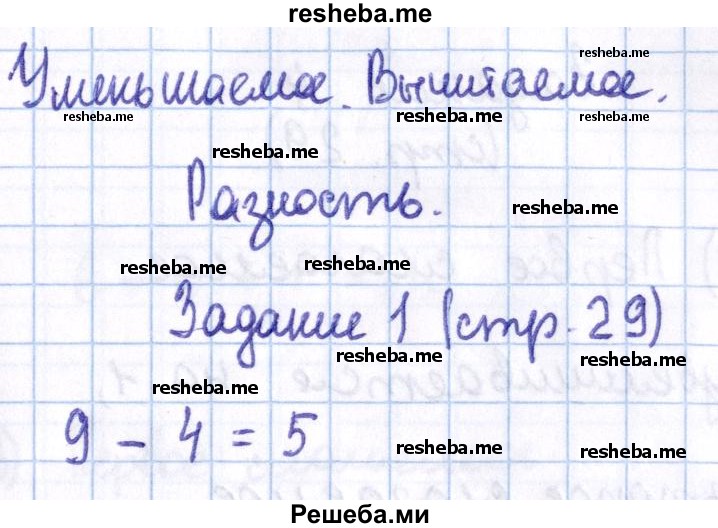 resheba.me
resheba.me
Уменьшаемое. Вычитаемое.
resheba.me resheba.me resheba.me
resheba.me
Разность.
resheba.me
resheba.me resheba.me
Задание 1 (стр. 29)
resheba.me resheba.me
resheba.me
9 - 4 = 5
resheba.me resheba.me
Решеба.ми